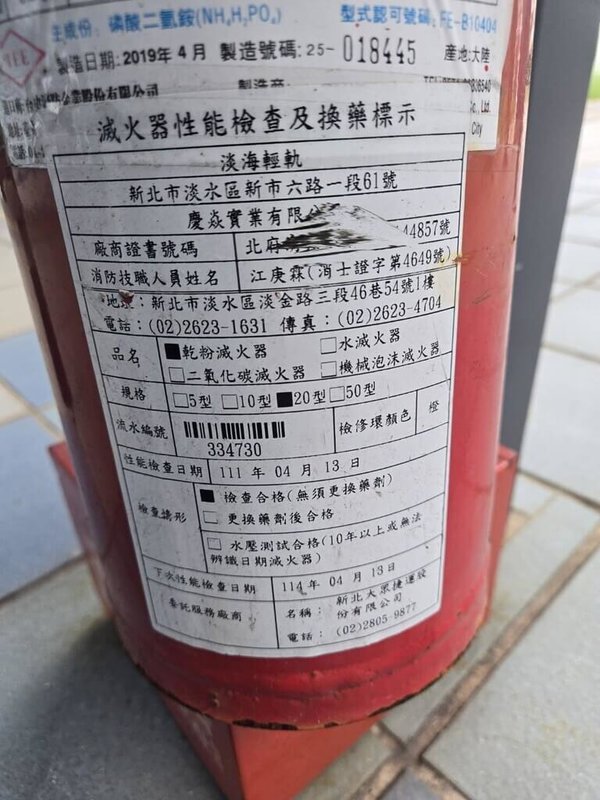 主成份: 磷酸二氫銨(NH₄H₂PO₄) 型式認可號碼: FE-B10404
製造日期:2019年4月 製造號碼:25-018445 產地:大陸
製造商:
企業股份有限公司
Co., Ltd.
City
滅火器性能檢查及換藥標示
淡海輕軌
新北市淡水區新市六路一段61號
慶焱實業有限
廠商證書號碼 北府 44857號
消防技職人員姓名 江庚霖(消士證字第4649號)
地址:新北市淡水區淡金路三段46巷54號1樓
電話:(02)2623-1631 傳真:(02)2623-4704
品名 ■乾粉滅火器 □水滅火器
□二氧化碳滅火器 □機械泡沫滅火器
規格 □5型 □10型 ■20型 □50型
流水編號 334730 檢修環顏色 橙
性能檢查日期 111 年 04 月 13 日
檢查情形 ■ 檢查合格(無須更換藥劑)
□ 更換藥劑後合格
□ 水壓測試合格(10年以上或無法
辨識日期滅火器)
下次性能檢查日期 114 年 04 月 13 日
委託服務廠商 名稱: 新北大眾捷運股
份有限公司
電話: (02)2805-9877